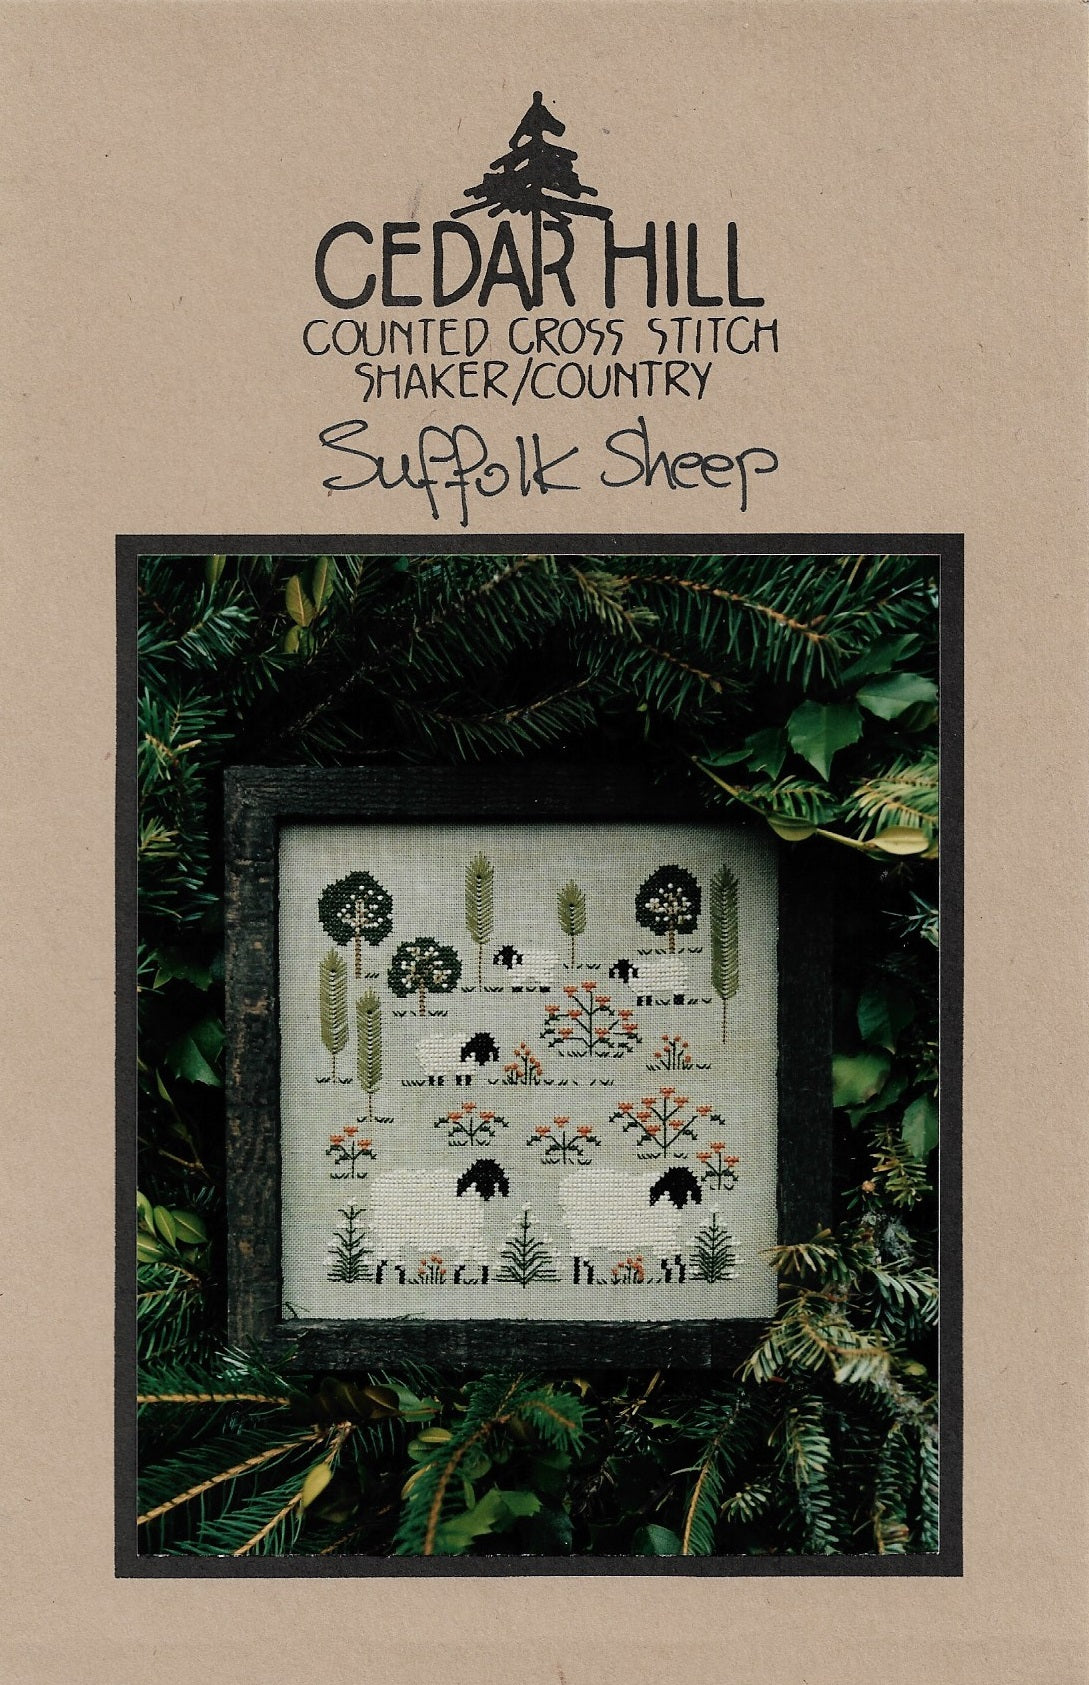 CEDAR HILL
COUNTED CROSS STITCH
SHAKER/COUNTRY
Suffolk Sheep